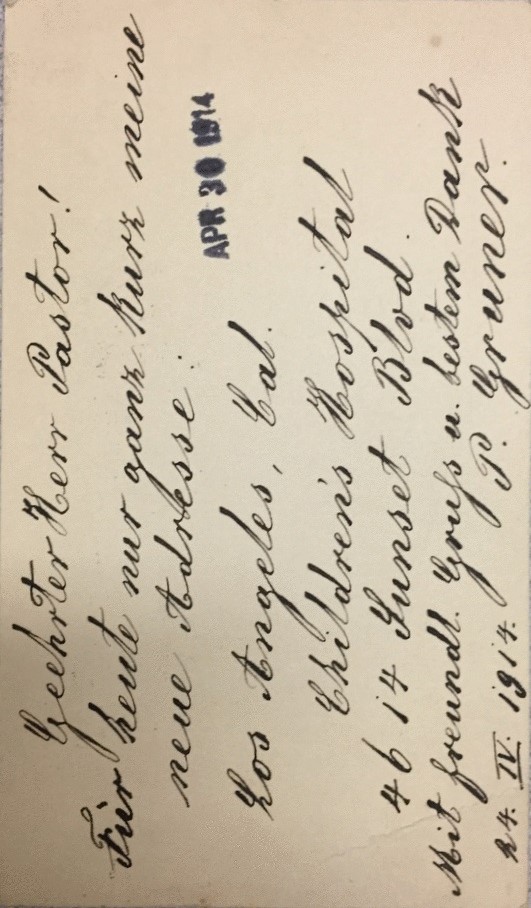 Geehrter Herr Pastor!
Für heute nur ganz kurz meine
neue Adresse:
APR 30 1914
Los Angeles, Cal.
Children's Hospital
4614 Sunset Blvd.
Mit freundl. Gruß u. bestem Dank
24. IV. 1914. P. Gruner.